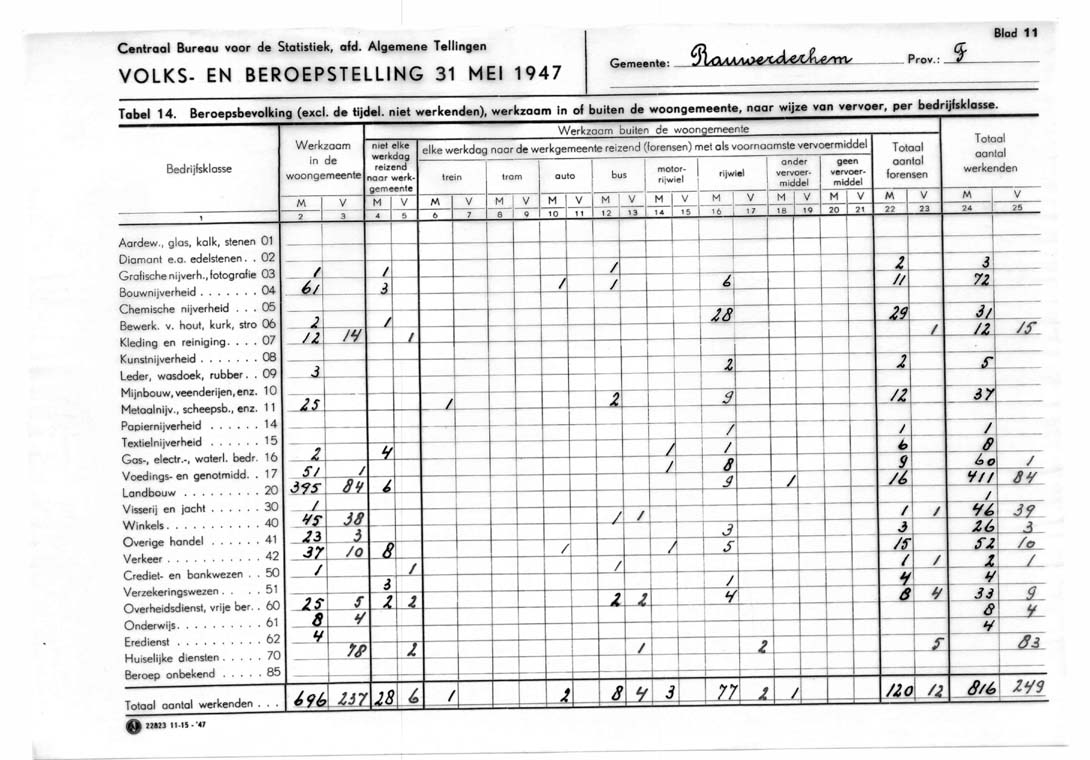 Centraal Bureau voor de Statistiek, afd. Algemene Tellingen
VOLKS- EN BEROEPSTELLING 31 MEI 1947
Gemeente: Rauwerderhem Prov.: F
Blad 11
Tabel 14. Beroepsbevolking (excl. de tijdel. niet werkenden), werkzaam in of buiten de woongemeente, naar wijze van vervoer, per bedrijfsklasse.
Bedrijfsklasse
Werkzaam in de woongemeente
Werkzaam buiten de woongemeente
niet elke werkdag reizend naar werkgemeente
elke werkdag naar de werkgemeente reizend (forensen) met als voornaamste vervoermiddel
trein tram auto bus motor-rijwiel rijwiel ander vervoer-middel geen vervoer-middel
Totaal aantal forensen
Totaal aantal werkenden
M V M V M V M V M V M V M V M V M V M V M V M V
1 2 3 4 5 6 7 8 9 10 11 12 13 14 15 16 17 18 19 20 21 22 23 24 25
Aardew., glas, kalk, stenen 01
Diamant e.a. edelstenen . . 02
Grafische nijverh., fotografie 03 1 1 1 2 3
Bouwnijverheid . . . . . . . 04 61 3 1 1 6 11 72
Chemische nijverheid . . . 05
Bewerk. v. hout, kurk, stro 06 2 1 28 29 31
Kleding en reiniging. . . . 07 12 14 1 1 12 15
Kunstnijverheid . . . . . . . 08
Leder, wasdoek, rubber. . 09 3 2 2 5
Mijnbouw, veenderijen, enz. 10
Metaalnijv., scheepsb., enz. 11 25 1 2 9 12 37
Papiernijverheid . . . . . . 14
Textielnijverheid . . . . . 15 1 1 1
Gas-, electr.-, waterl. bedr. 16 2 4 1 1 6 8
Voedings- en genotmidd. . 17 51 1 1 8 9 60 1
Landbouw . . . . . . . . . 20 395 84 6 9 1 16 411 84
Visserij en jacht . . . . . . 30 1 1
Winkels . . . . . . . . . . . 40 45 38 1 1 1 1 46 39
Overige handel . . . . . . 41 23 3 3 3 26 3
Verkeer . . . . . . . . . . . 42 37 10 8 1 1 5 15 52 10
Crediet- en bankwezen . . 50 1 1 1 1 1 2 1
Verzekeringswezen . . . . 51 3 1 4 4
Overheidsdienst, vrije ber. . 60 25 5 2 2 2 2 4 8 4 33 9
Onderwijs. . . . . . . . . . 61 8 4 8 4
Eredienst . . . . . . . . . . 62 4 4
Huiselijke diensten . . . . . 70 78 2 1 2 5 83
Beroep onbekend . . . . . 85
Totaal aantal werkenden . . . 696 237 28 6 1 2 8 4 3 77 2 1 120 12 816 249
22823 11-15 - '47